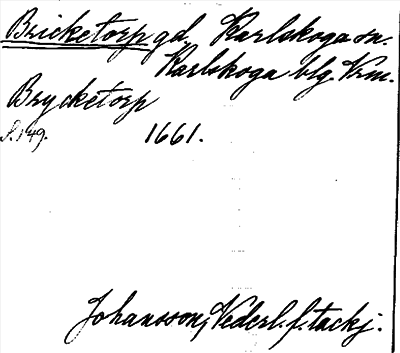 Bricketorp gd. Karlskoga sn.
Karlskoga blg. Vrm.
Brycketorp
S. 149. 1661.
Johansson, Vederl. f. tackj.